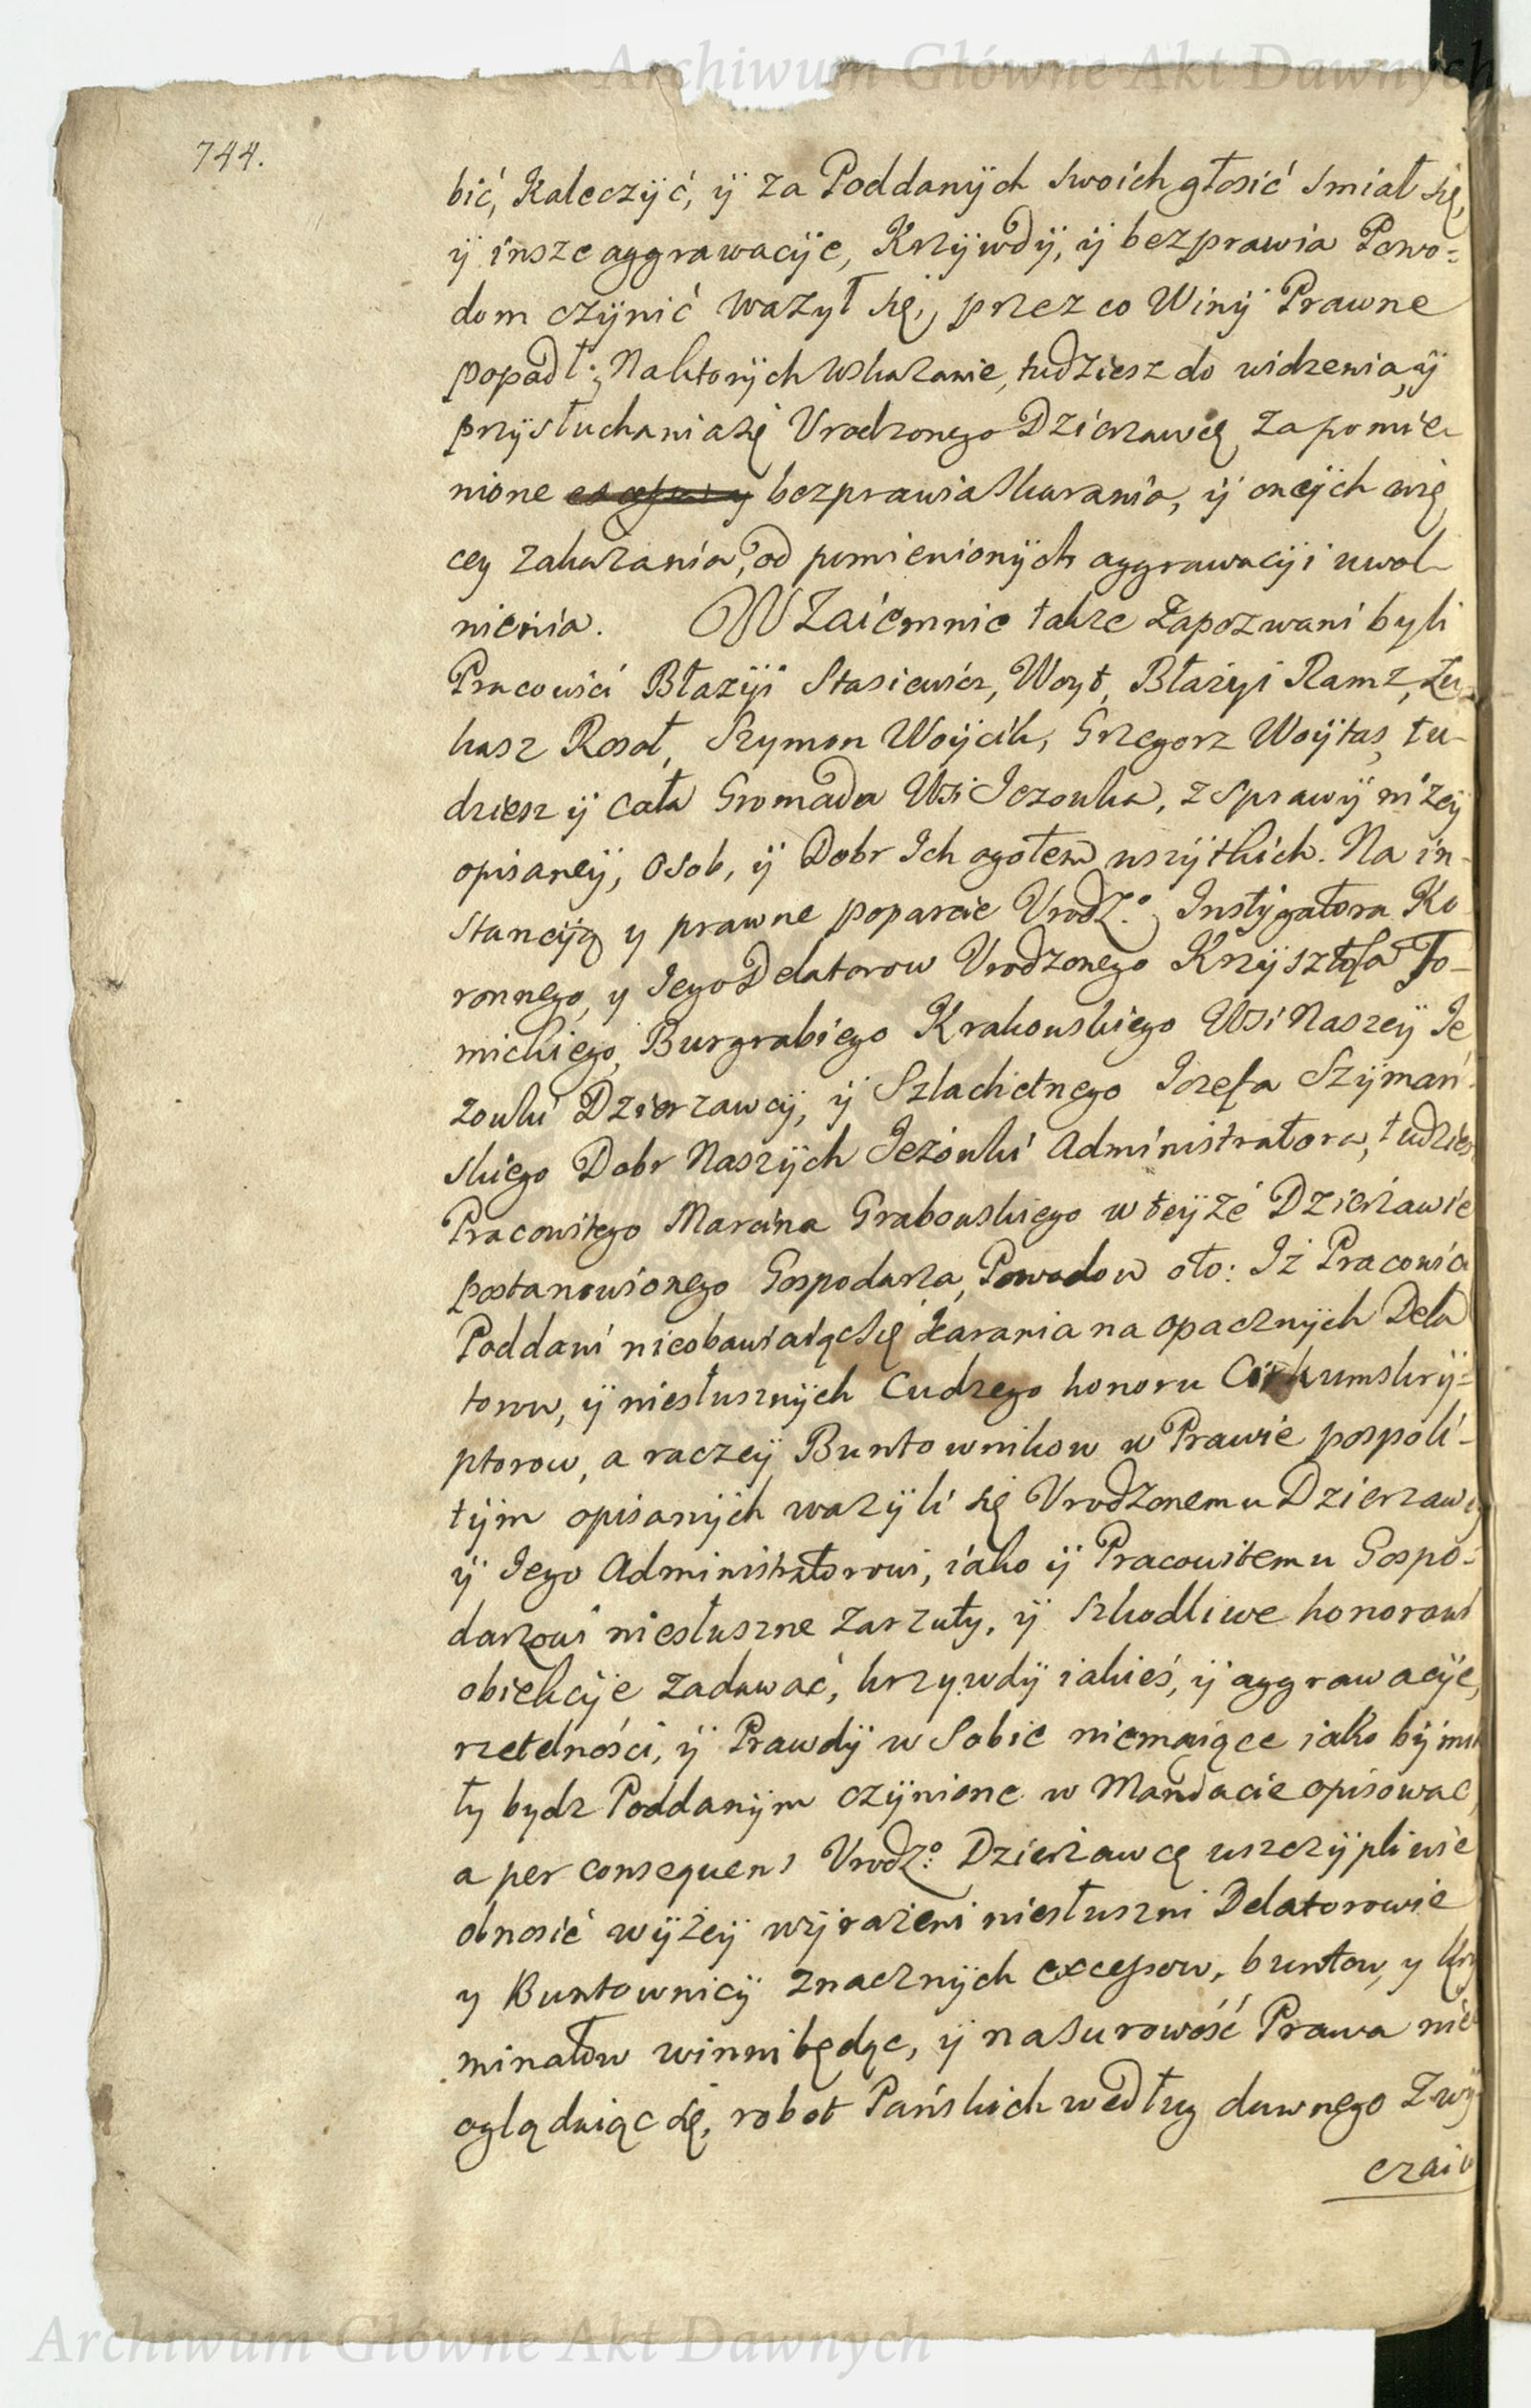 Archiwum Główne Akt Dawnych
744.
bić, Kaleczÿć, ÿ za Poddanÿch swoich głosić smiał się,
ÿ insze aggrawacÿe, Krzÿwdÿ, ÿ bezprawia Powo=
dom czÿnić wazył się, przez co Winÿ Prawne
popadł; Naktorÿch wskazanie, tudziesz do widzenia, ÿ
przÿsłuchania się Urodzonego Dzierzawcę zapomie-
nione bezprawia Skarania, ÿ onÿch wię
cey zakazania, od pomienionÿch aggrawacÿi uwol-
nienia. WZaiemnie takze Zapozwani byli
Pracowici Błazÿi Stasiewicz, Woyt, Błazyi Ramz, Łu-
kasz Rosoł, Szymon Woÿcik, Grzegorz Woÿtas, tu-
dziesz ÿ cała Gromada Wsi Jezowka, z Sprawÿ niżeÿ
opisaneÿ, Osob, ÿ Dobr Ich ogołem wszÿtkich. Na in-
stancÿą y prawne poparcie Urodz.º Instÿgatora Ko-
ronnego, y Jego Delatorow Urodzonego Krzÿsztofa To-
mickiego, Burgrabiego Krakowskiego Wsi Naszeÿ Je
zowki Dzierzawcÿ, ÿ Szlachetnego Jozefa Szÿmań-
skiego Dobr Naszÿch Jeżowki Administratora, tudziesz
Pracowitego Marcina Grabowskiego w teÿże Dzierżawie
postanowionego Gospodarza, Powodow oto: Iż Pracowici
Poddani nieobawiaiąc się karania na opacznÿch Dela
torow, ÿ niesłusznÿch Cudzego honoru Cirkumskrÿ=
ptorow, a raczeÿ Buntownikow w Prawie pospoli-
tÿm opisanÿch wazÿli się Urodzonemu Dzierzawcy
ÿ Jego Administratorowi, iako ÿ Pracowitemu Gospo=
darzowi niesłuszne zarzuty, ÿ szkodliwe honorowi
obiekcÿe zadawać, krzywdÿ iakieś, ÿ aggrawacÿe,
rzetelności, ÿ Prawdÿ w Sobie niemaiące iako bÿ mia
ły bydz Poddanÿm czÿnione w Mandacie opisowac,
a per consequens Urodz.º Dzierżawcę uszczÿpliwie
obnosić wÿżeÿ wÿrażeni niesłuszni Delatorowie
y Buntownicÿ znacznÿch excessow, buntow, y Kry
minałow winni będąc, ÿ na surowość Prawa nie
oglądaiąc się, robot Pańskich według dawnego Zwÿ
czaiu
Archiwum Główne Akt Dawnych